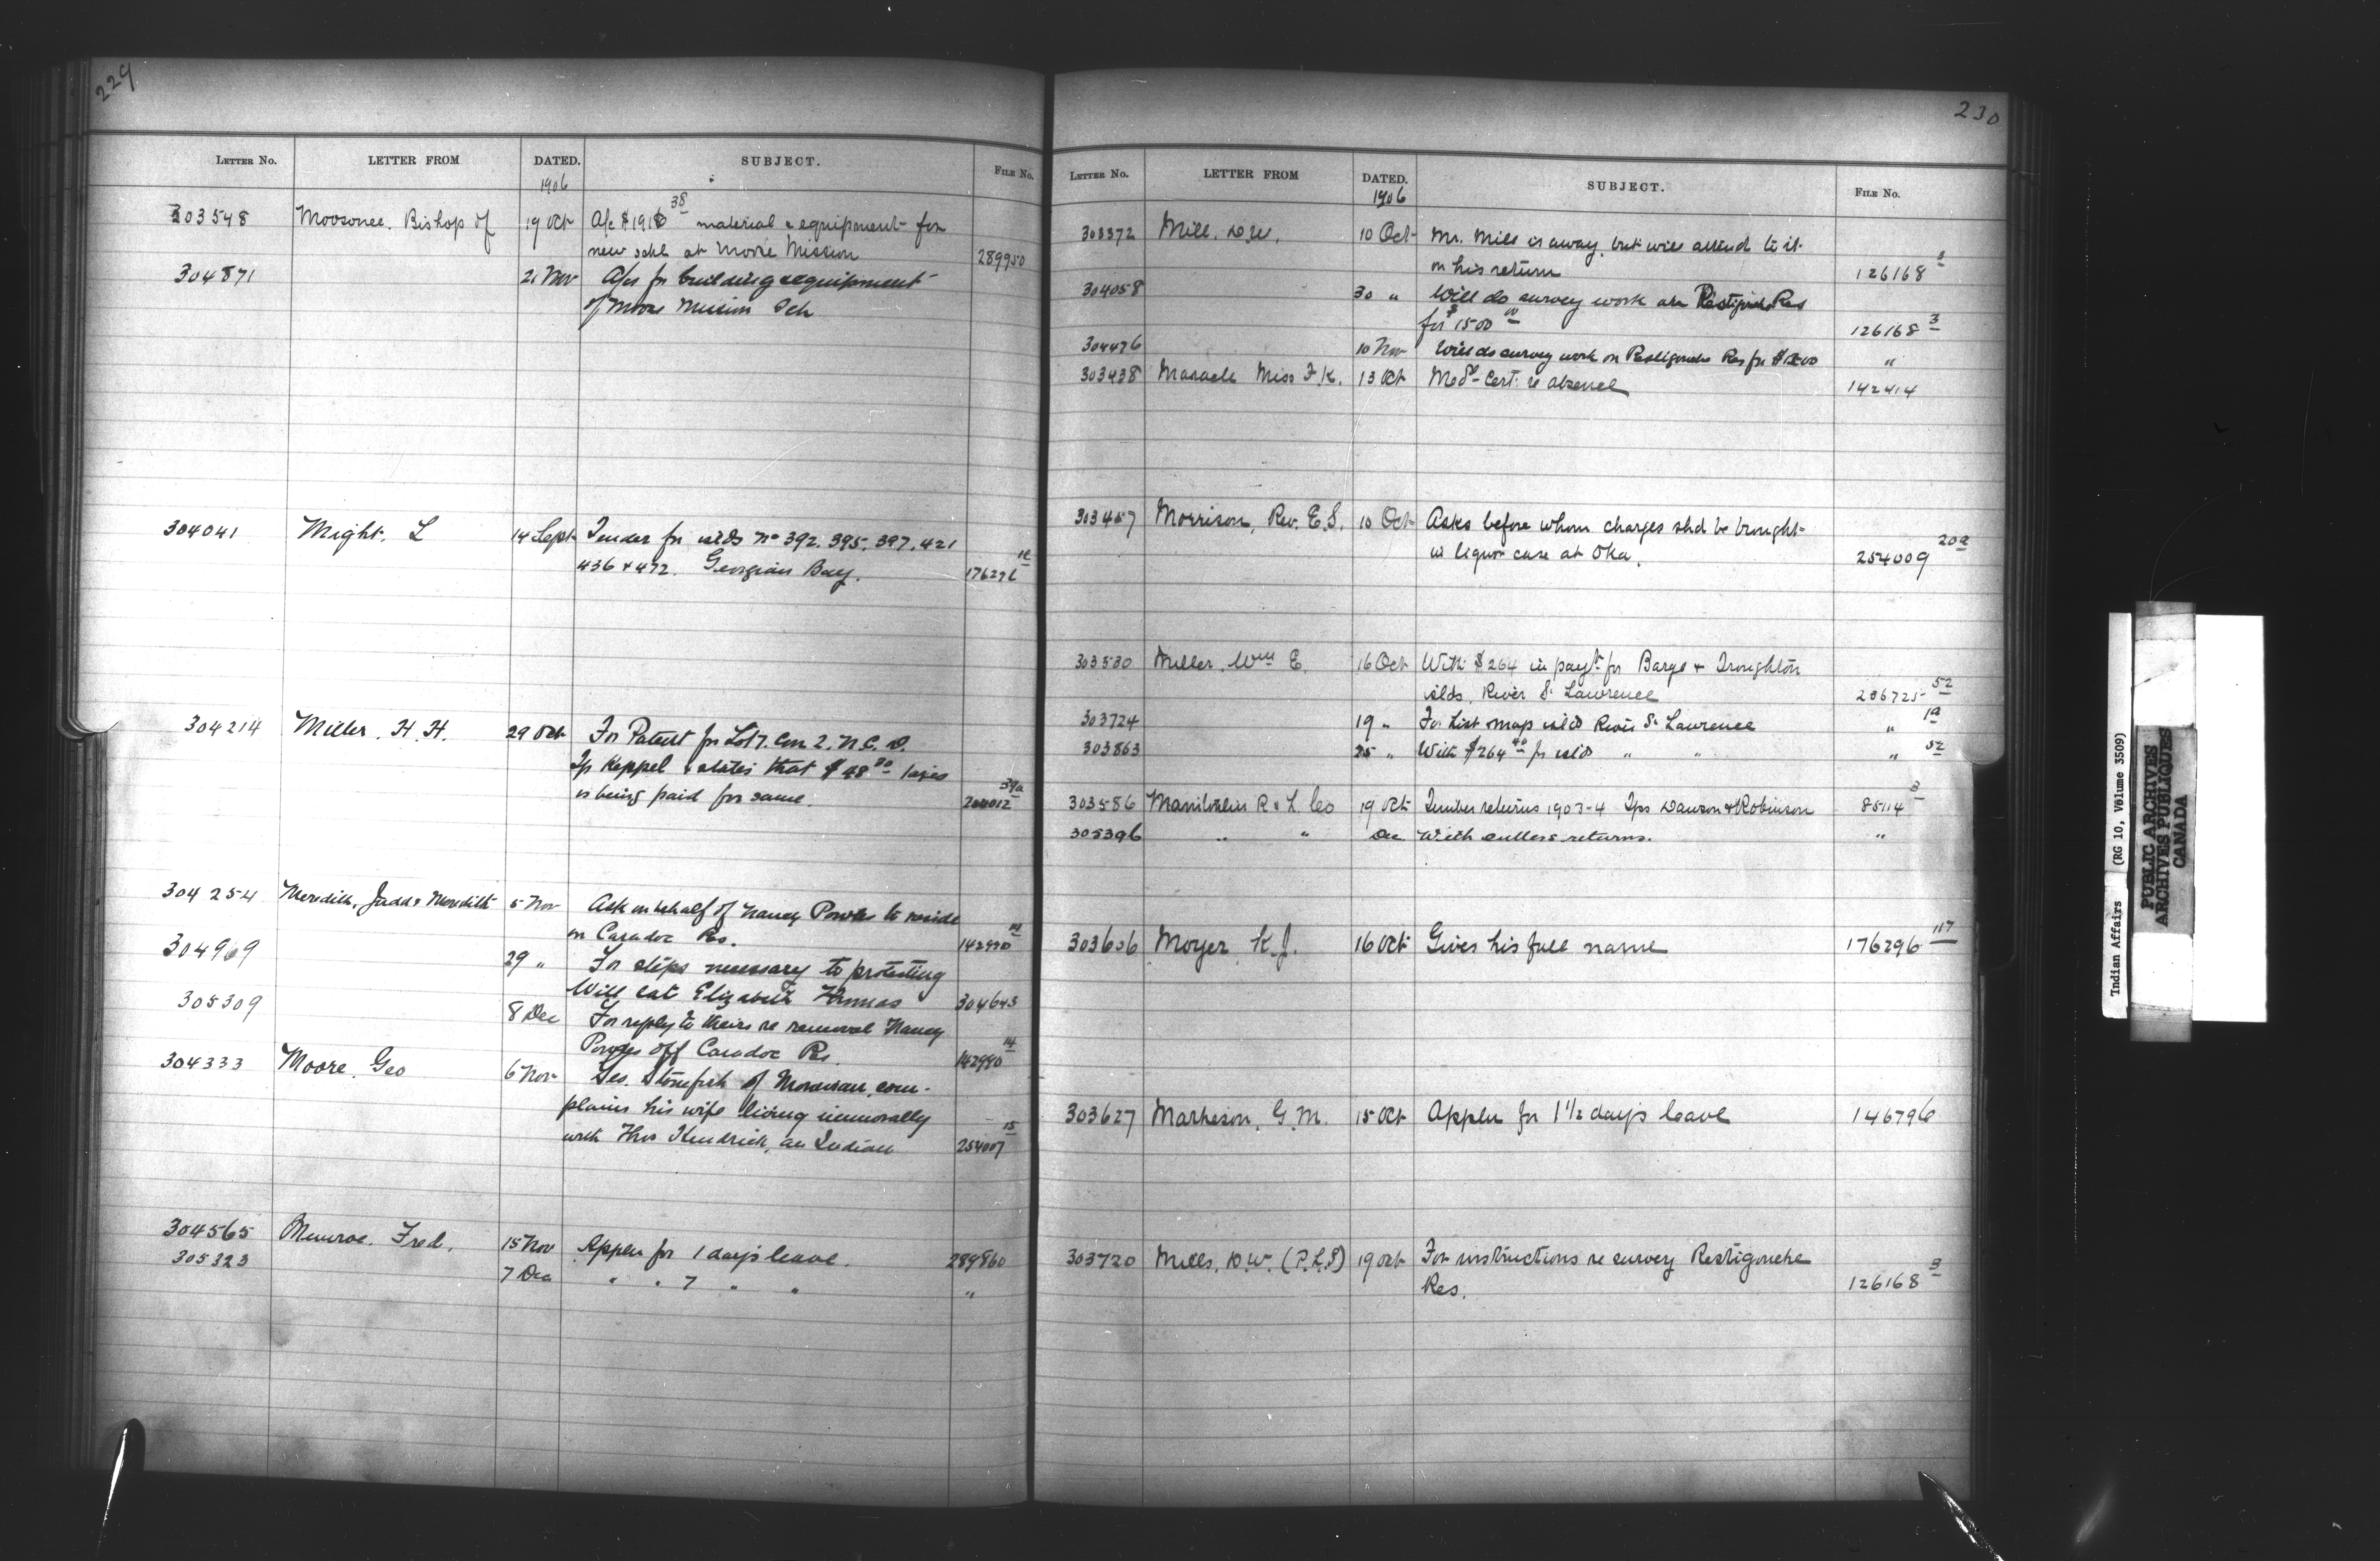 229
LETTER No. LETTER FROM DATED. SUBJECT. FILE No.
1906
303548 Moosonee. Bishop of 19 Oct A/c $191 38 material & equipment for
new schl at Moose Mission 289950
304871 21 Nov A/cs for building & equipment
of Moose Mission Sch
304041 Might. L 14 Sept Tender for islds No 392. 395. 397. 421
436 & 472. Georgian Bay. 176276
304214 Miller. H. H. 29 Oct For Patent for Lot 7. Con 2. N. C. D.
Tp Keppel & states that $48 taxes
is being paid for same. 39a
304254 Meredith, Judd & Meredith 5 Nov Ask on behalf of Nancy to reside
on Caradoc Res. 142990 14
304969 29 " For steps necessary to protesting
Will late Elizabeth 304643
305309 8 Dec For reply to theirs re removal Nancy
off Caradoc Res. 142990 14
304333 Moore. Geo 6 Nov Geo. Stonefish of Moravian com-
plains his wife living immorally
with Thos Kendrick, an Indian 254007 15
304565 Munroe. Fred. 15 Nov Applen for 1 day's leave. 289860
305323 7 Dec " " 7 " " "
230
LETTER No. LETTER FROM DATED. SUBJECT. FILE No.
1906
303372 Mill. D.W. 10 Oct Mr. Mill is away, but will attend to it
on his return 126168 3
304058 30 " Will do survey work on Restigouche Res
for $1500 00 126168 3
304476 10 Nov Will do survey work on Restigouche Res for "
303438 Maracle Miss F.K. 13 Oct Medl Cert. re absence 142414
303457 Morrison, Rev. E.S. 10 Oct Asks before whom charges shd be brought
in liquor case at Oka. 254009 20a
303530 Miller, Wm E. 16 Oct With $264 in payt for Barge & Troughton
islds. River St Lawrence 206725 52
303724 19 " For list map islds River St Lawrence " 1a
303863 25 " With $264 40 for islds " " " 52
303586 Manitoulin R & L Co 19 Oct Timber returns 1903-4 Tps Dawson & Robinson 85114 3
305396 " " Dec With cullers returns. "
303606 Moyer K.J. 16 Oct Gives his full name 176296 117
303627 Matheson, G.M. 15 Oct Applen for 1 1/2 day's leave 146796
303720 Mills. D.W. (P.L.S) 19 Oct For instructions re survey Restigouche
Res. 126168 3
Indian Affairs (RG 10, Volume 3509)
PUBLIC ARCHIVES
ARCHIVES PUBLIQUES
CANADA